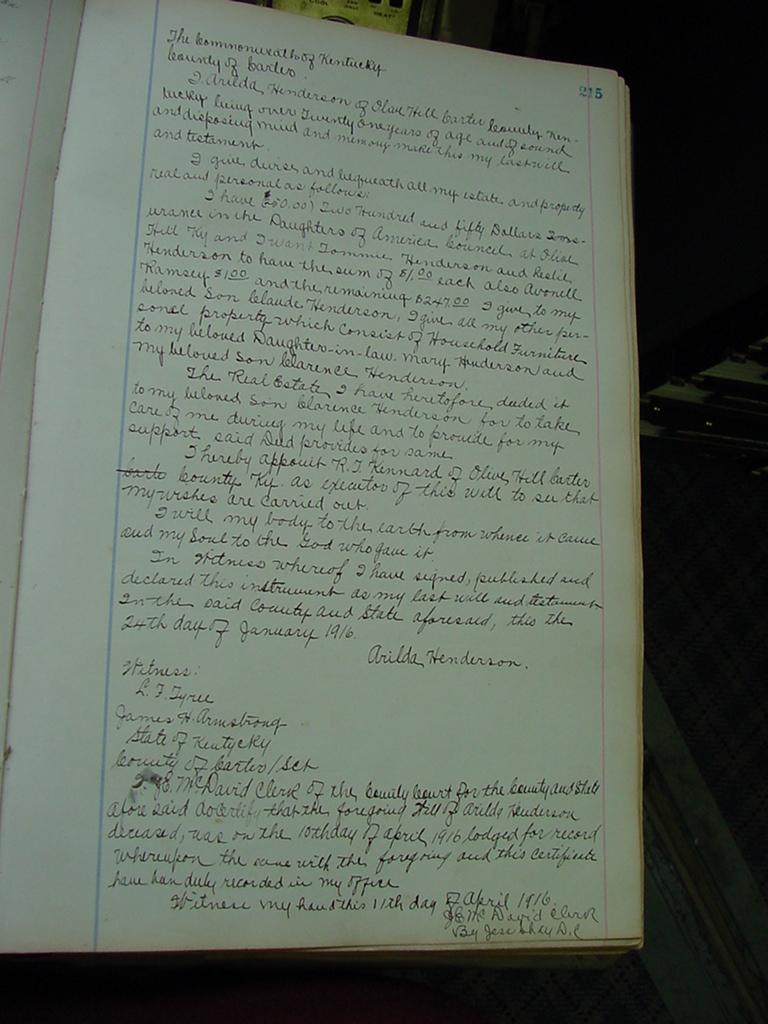 215
The Commonwealth of Kentucky
County of Carter.
I Arilda Henderson of Olive Hill Carter County Ken-
tucky being over Twenty one years of age and of sound
and disposing mind and memory make this my last will
and testament.
I give, devise and bequeath all my estate and property
real and personal as follows:
I have $250.00) Two Hundred and fifty Dollars Inns-
urance in the Daughters of America Council at Olive
Hill Ky and I want Tommie Henderson and Leslie
Henderson to have the sum of $1.00 each also Avonell
Ramsey $1.00 and the remaining $247.00 I give to my
beloved Son Claude Henderson, I give all my other per-
sonel property which consist of Household Furniture
to my beloved Daughter-in-law. Mary Henderson and
my beloved Son Clarence Henderson.
The Real Estate I have heretofore deeded it
to my beloved Son Clarence Henderson for to take
care of me during my life and to provide for my
support said Deed provides for same
I hereby appoint R. T. Kennard of Olive Hill Carter
County Ky. as executor of this will to see that
my wishes are carried out.
I will my body to the earth from whence it came
and my Soul to the God who gave it.
In Witness whereof I have signed, published and
declared this instrument as my last will and testament
In the said County and State aforesaid, this the
24th day of January 1916.
Arilda Henderson.
Witness:
L. F. Tyree
James H. Armstrong
State of Kentycky
County of Carter/Sct
I. J.E. McDavid Clerk of the County Court for the County and State
afore said do certify that the foregoing Will of Arilda Henderson
deceased, was on the 10th day of April 1916 lodged for record
whereupon the same with the foregoing and this certificate
have ben duly recorded in my office
Witness my hand this 11th day of April 1916.
J.E. McDavid Clerk
By D.C